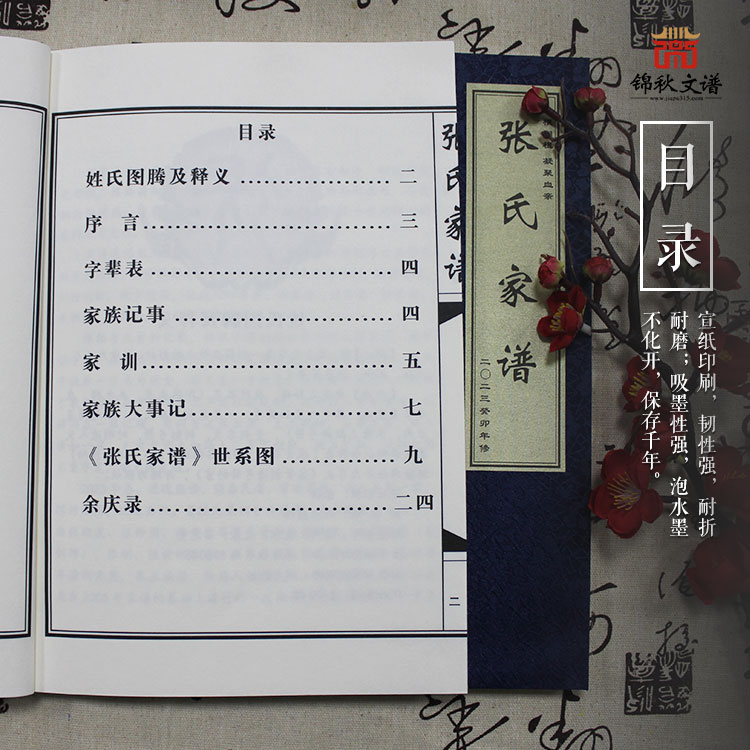 目录
姓氏图腾及释义 ………………… 二
序 言 ………………………… 三
字辈表 ………………………… 四
家族记事 ……………………… 四
家 训 ………………………… 五
家族大事记 …………………… 七
《张氏家谱》世系图 …………… 九
余庆录 ………………………… 二四
二
张氏家谱
凝聚血亲
张氏家谱
二〇二三癸卯年修
锦秋文谱
www.jiapu315.com
目录
宣纸印刷，韧性强，耐折
耐磨；吸墨性强，泡水墨
不化开，保存千年。